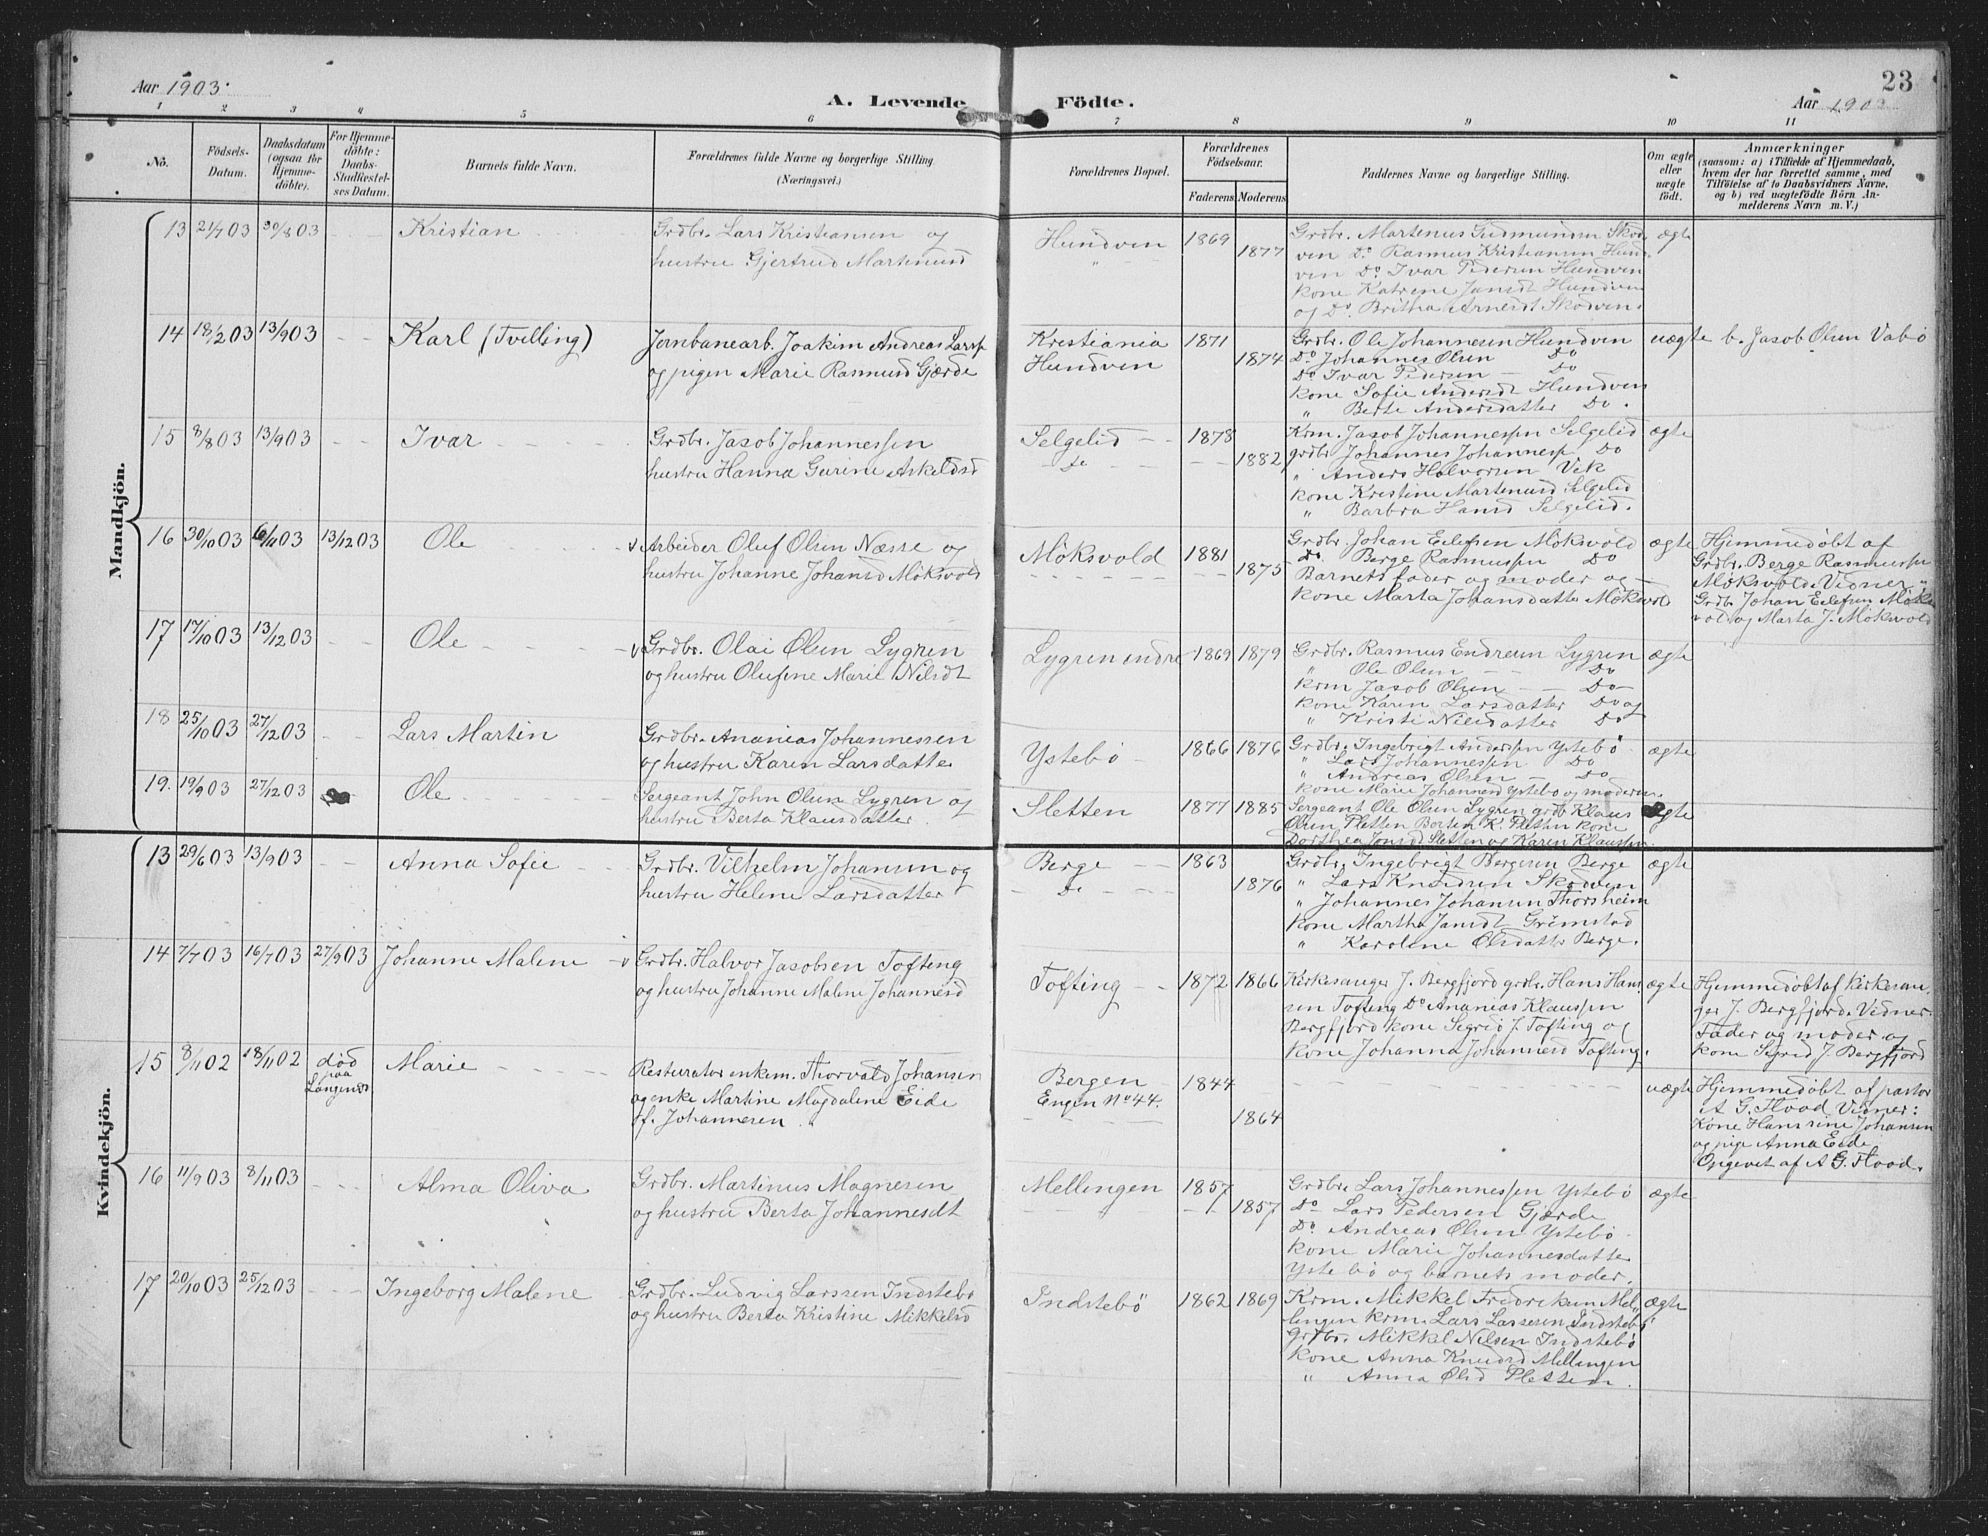 Aar 1903.
A. Levende Födte.
Aar 1903
23
1 2 3 4 5 6 7 8 9 10 11
No.
Födsels-Datum.
Daabsdatum (ogsaa for Hjemme-döbte).
For Hjemme-döbte: Daabs-Stadfæstel-ses Datum.
Barnets fulde Navn.
Forældrenes fulde Navne og borgerlige Stilling.
(Næringsvei.)
Forældrenes Bopæl.
Forældrenes Födselsaar.
Faderens Moderens
Faddernes Navne og borgerlige Stilling.
Om ægte eller uægte födt.
Anmærkninger
(saasom: a) i Tilfælde af Hjemmedaab,
hvem der har forrettet samme, med
Tilföielse af to Daabsvidners Navne,
og b) ved uægtefödte Börn An-
melderens Navn m. V.)
Mandkjön.
13 21/7 03 30/8 03 Kristian
Grdbr. Lars Kristiansen og
hustru Gjertrud Martinusd
Hundven 1869 1877
Grdbr. Martenus Gudmundsen Skod-
ven Do Rasmus Kristiansen Hund-
ven Do Ivar Pedersen Hundven
kone Katrene Jansdt Hundven
og Do Britha Arnesdt Skodven.
ægte
14 18/2 03 13/9 03 Karl (Tvilling)
Jernbanearb. Joakim Andreas Larss
og pigen Marie Rasmusd Gjærde
Kristiania
Hundven
1871 1874
Grdbr. Ole Johannesen Hundven
Do Johannes Olsen Do
Do Ivar Pedersen Do
kone Sofie Andersdt Hundven
" Berte Andersdatter Do.
uægte b. Jasob Olsen Vabø
15 8/8 03 13/9 03 Ivar
Grdbr. Jasob Johannessen
hustru Hanna Gurine Askeldsd
Selgelid
do
1878 1882
Krm. Jasob Johannessen Selgelid
grdbr Johannes Johanness Do
" Anders Halvorsen Vik
kone Kristine Martinusd Selgelid
" Barbra Hansd Selgelid.
ægte
16 30/10 03 6/11 03 13/12 03 Ole
Arbeider Oluf Olsen Næsse og
hustru Johanne Johansd Möksvold
Möksvold 1881 1875
Grdbr. Johan Eilefsen Möksvold
Do Berge Rasmussen Do
Barnets fader og moder og
kone Marta Johansdatter Möksvold
ægte
Hjemmedöbt af
Grdbr. Berge Rasmussen
Möksvold. Vidner "
Grdb. Johan Eilefsen Möks
vold og Marta J. Möksvold
17 17/10 03 13/12 03 Ole
Grdbr. Olai Olsen Lygren
og hustru Olufine Marie Nilsdt
Lygren indre 1869 1879
Grdbr. Rasmus Endresen Lygren
" Ole Olsen Do
krm Jasob Olsen Do
kone Karen Larsdatter Do og
" Kristi Nilsdatter Do
ægte
18 25/10 03 27/12 03 Lars Martin
Grdbr. Ananias Johannessen
og hustru Karen Larsdatter
Ystebø 1866 1876
Grdbr. Ingebrigt Andersen Ystebø
" Lars Johannessen Do
" Andreas Olsen Do
kone Marie Johannesd Ystebø og moderen.
ægte
19. 19/9 03 27/12 03 Ole
Sergeant John Olsen Lygren og
hustru Berta Klausdatter.
Sletten 1877 1885
Sergeant Ole Olsen Lygren grdb Klaus
Olsen Sletten Borten K. Sletten kone
Dorthea Jonsd Sletten og Karen Klaussen.
ægte
Kvindekjön.
13 29/6 03 13/9 03 Anna Sofie
Grdbr. Vilhelm Johansen og
hustru Helene Larsdatter
Berge
Do
1863 1876
Grdbr. Ingebrigt Bergesen Berge
" Lars Knudsen Skodven
" Johannes Johansen Thorsheim
kone Martha Jansdt Grimstad
" Karoline Olsdatter Berge.
ægte
14 7/7 03 16/7 03 27/9 03 Johanne Malene
Grdbr. Halvor Jasobsen Tofting
og hustru Johanne Malene Johannesd
Tofting 1872 1866
Kirkesanger J. Bergfjord grdbr. Hans Han-
sen Tofting Do Ananias Klaussen
Bergfjord kone Segrid J. Tofting og
kone Johanna Johannesd Tofting.
ægte
Hjemmedöbt af kirkesan-
ger J. Bergfjord. Vidner
Fader og moder og
kone Segrid J. Bergfjord
15 8/11 02 18/11 02 död paa Langenes Marie
Resturatörenkem. Thorvald Johansen
og enke Martine Magdalene Eide
f. Johannesen.
Bergen
Engen No 44.
1844 1864
uægte
Hjemmedöbt af pastor
A G. Flood Vidner:
Kone Hanssine Johansen
og pige Anna Eide
Opgevet af A G. Flood.
16 11/9 03 8/11 03 Alma Oliva
Grdbr. Martinus Magnesen
og hustru Berta Johannesdt
Mellingen 1857 1857
Grdbr. Lars Johannessen Ystebø
Do Lars Pedersen Gjærde
Do Andreas Olsen Ystebø
kone Marie Johannesdatter
Ystebø og barnets moder.
ægte
17 20/10 03 25/12 03 Ingeborg Malene
Grdbr. Ludvig Larssen Indstebø
og hustru Berta Kristine Mikkelsd
Indstebø 1862 1869
Krm. Mikkel Fredriksen Mel-
lingen krm. Lars Lassesen Indstebø
Grdbr. Mikkel Nilsen Indstebø
kone Anna Knudsd Mellingen
" Anna Olsd Sletten.
ægte